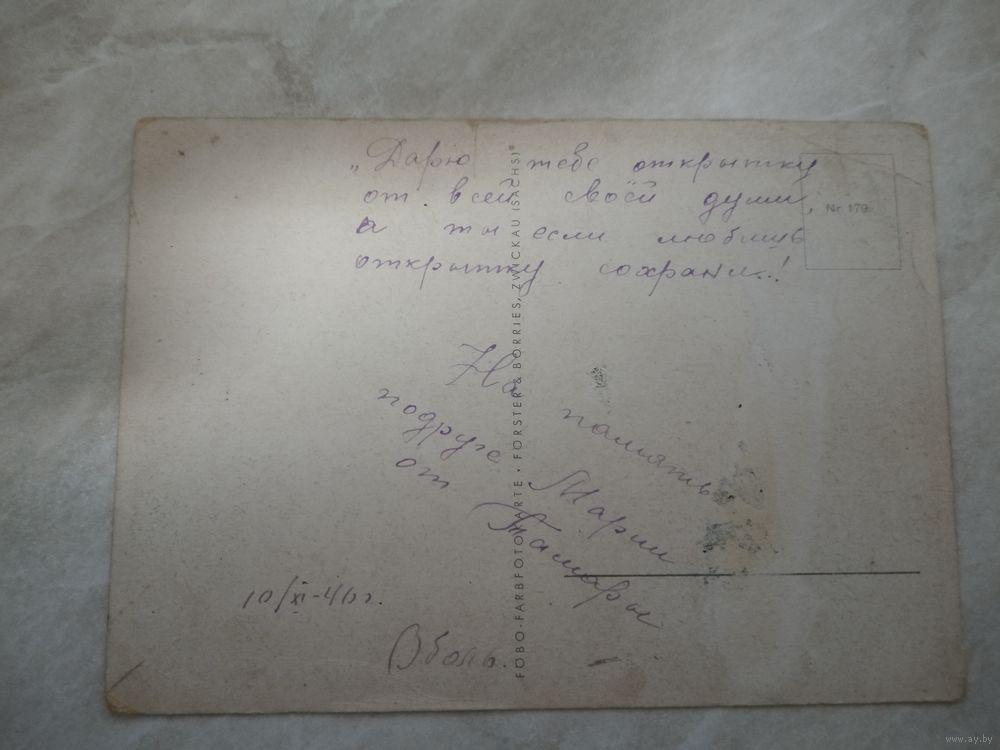 „Дарю тебе открытку
от всей своей души,
а ты если любишь
открытку сохрани..!
Nr. 179
На память
подруге Марии
от Тамары
10/XI-46г.
Оболь.
FOBO-FARBFOTOKARTE • FÖRSTER & BORRIES, ZWICKAU (SACHS)
www.ay.by